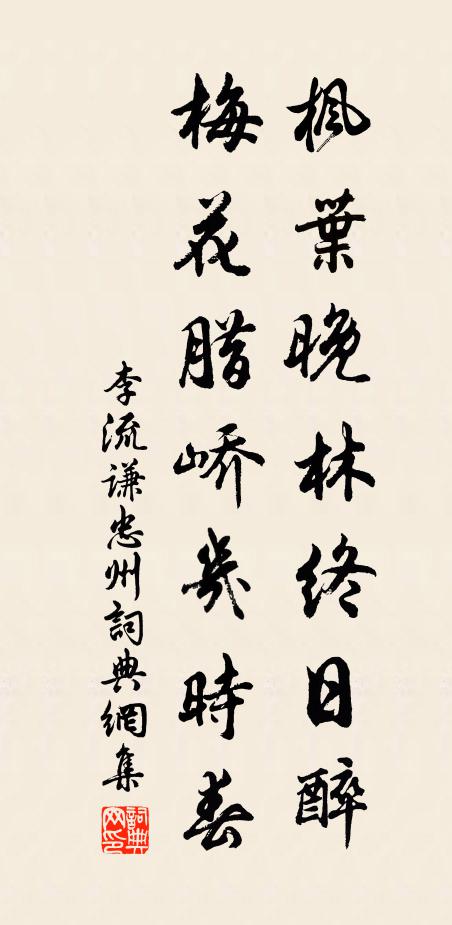 楓葉晚林終日醉
梅花腊嶠幾時春
李流謙忠州詞典網集
詞典网印